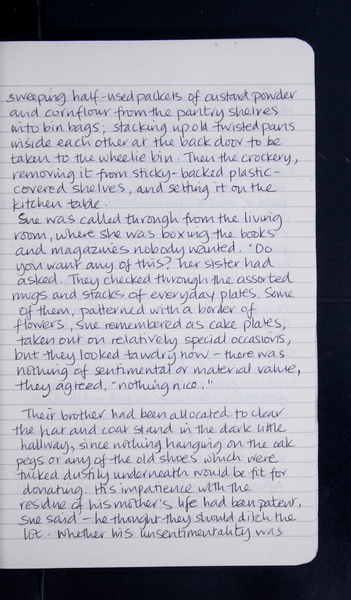 sweeping half-used packets of custard powder
and cornflour from the pantry shelves
into bin bags; stacking up old twisted pans
inside each other at the back door to be
taken to the wheelie bin. Then the crockery,
removing it from sticky-backed plastic-
covered shelves, and setting it on the
kitchen table.
She was called through from the living
room, where she was boxing the books
and magazines nobody wanted. "Do
you want any of this?" her sister had
asked. They checked through the assorted
mugs and stacks of everyday plates. Some
of them, patterned with a border of
flowers, she remembered as cake plates,
taken out on relatively special occasions,
but they looked tawdry now - there was
nothing of sentimental or material value,
they agreed, "nothing nice."
Their brother had been allocated to clear
the hat and coat stand in the dark little
hallway; since nothing hanging on the oak
pegs or any of the old shoes which were
tucked dustily underneath would be fit for
donating. His impatience with the
residue of his mother's life had been patent,
she said - he thought they should ditch the
lot. Whether his unsentimentality was